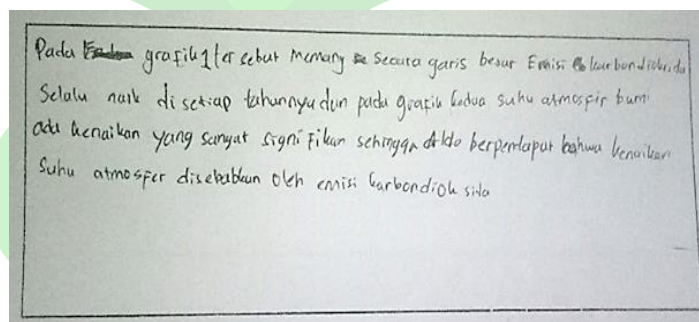 Pada grafik 1 tersebut memang secara garis besar Emisi karbondioksida
Selalu naik di setiap tahunnya dan pada grafik kedua suhu atmosfir bumi
ada kenaikan yang sangat signifikan sehingga Aldo berpendapat bahwa kenaikan
Suhu atmosfer disebabkan oleh emisi karbondioksida